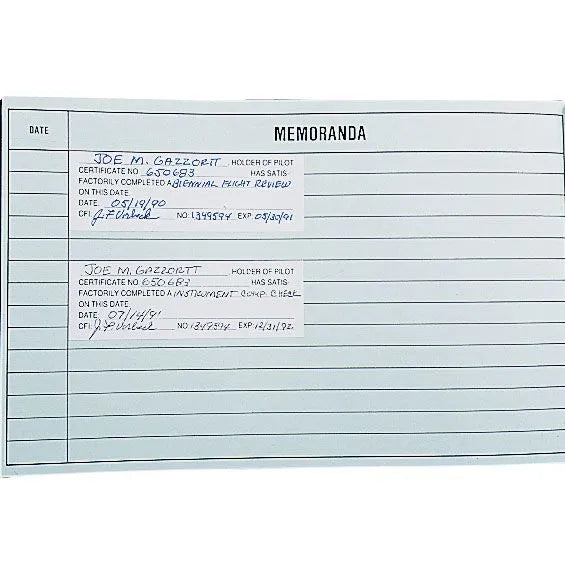 DATE
MEMORANDA
JOE M. GAZZORTT HOLDER OF PILOT
CERTIFICATE NO. 650683 HAS SATIS-
FACTORILY COMPLETED A BIENNIAL FLIGHT REVIEW
ON THIS DATE.
DATE: 05/19/90
CFI: NO. 1349594 EXP: 05/30/91
JOE M. GAZZORTT HOLDER OF PILOT
CERTIFICATE NO. 650683 HAS SATIS-
FACTORILY COMPLETED A INSTRUMENT COMP. CHECK
ON THIS DATE.
DATE: 07/14/91
CFI: NO. 1349594 EXP: 12/31/92